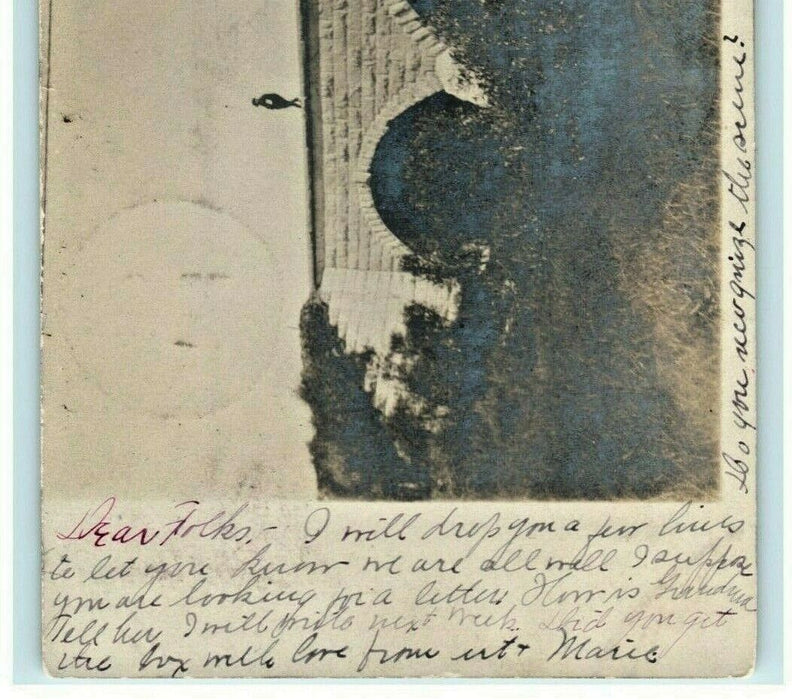 Dear Folks,- I will drop you a few lines
to let you know we are all well I suppose
you are looking for a letter How is Grandma
Tell her I will write next week. Did you get
the box with love from Marie
Do you recognize this scene?